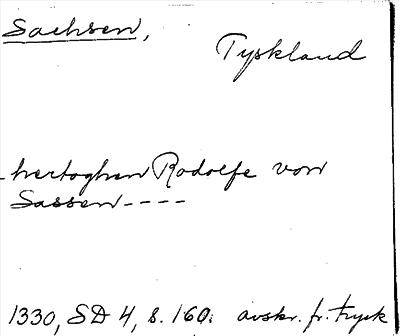 Sachsen,
Tyskland
- hertoghen Rodolfe von
Sassen ----
1330, SD 4, s. 160. avskr. fr. tryck